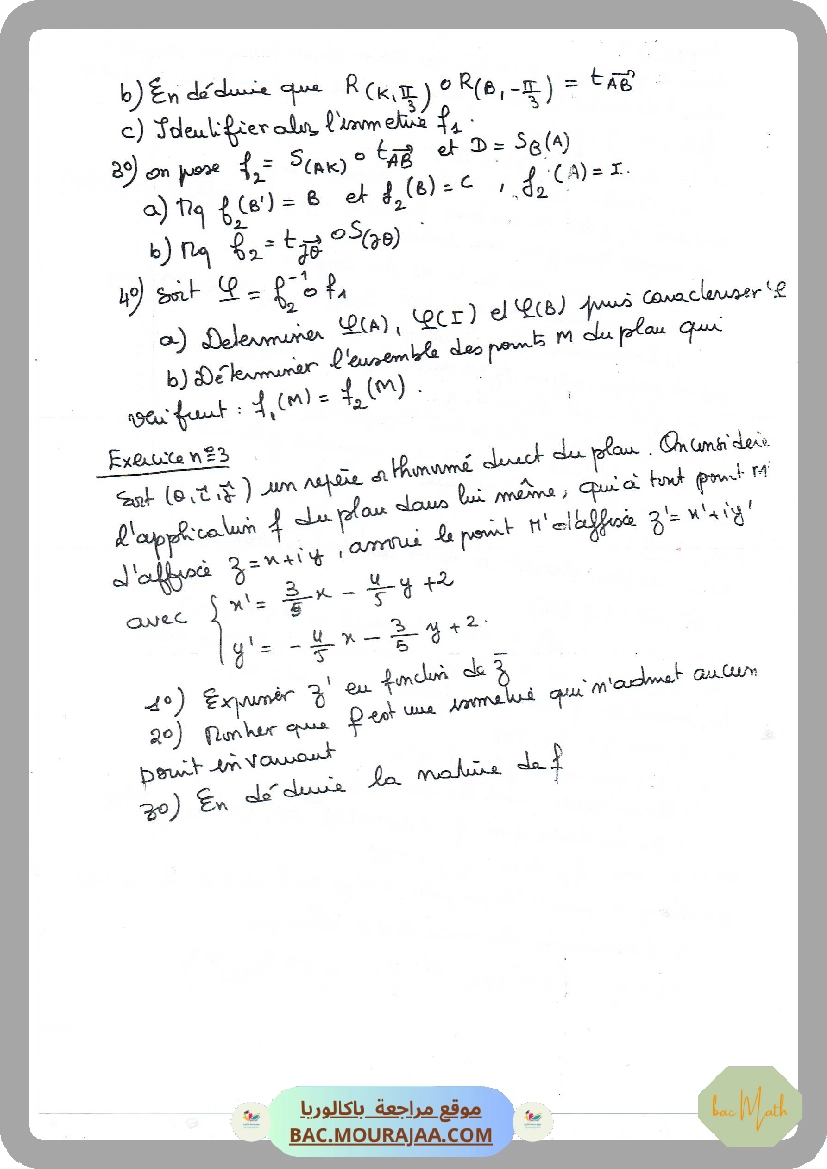 b) En déduire que R(K, π/3) o R(B, -π/3) = t AB'
c) Identifier alors l'isometrie f₁.
3°) on pose f₂ = S(AK) o t AB' et D = S_B(A)
a) Mq f₂(B') = B et f₂(B) = C , f₂(A) = I.
b) Mq f₂ = t Jθ o S(Jθ)
4°) Soit φ = f₂⁻¹ o f₁
a) Determiner φ(A), φ(I) et φ(B) puis caracteriser φ
b) Déterminer l'ensemble des points M du plan qui
verifient : f₁(M) = f₂(M) .
Exercice n°3
Soit (θ, i, j) un repère orthonormé direct du plan. On considère
l'application f du plan dans lui même, qui à tout point M
d'affixe z = x + iy, associe le point M' d'affixe z' = x' + iy'
avec { x' = 3/5 x - 4/5 y + 2
y' = - 4/5 x - 3/5 y + 2.
1°) Exprimer z' en fonction de z̄
2°) Montrer que f est une isometrie qui n'admet aucun
point invariant
3°) En déduire la nature de f
موقع مراجعة باكالوريا
BAC.MOURAJAA.COM
bac Math